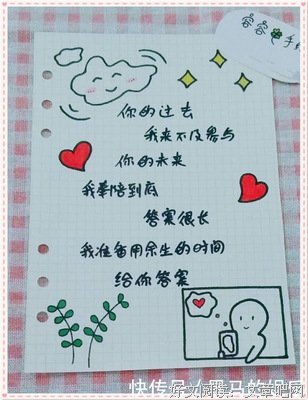 容容手
你的过去
我来不及参与
你的未来
我奉陪到底
答案很长
我准备用余生的时间
给你答案
快传号/黑马的娱
好文阅读—文章吧网